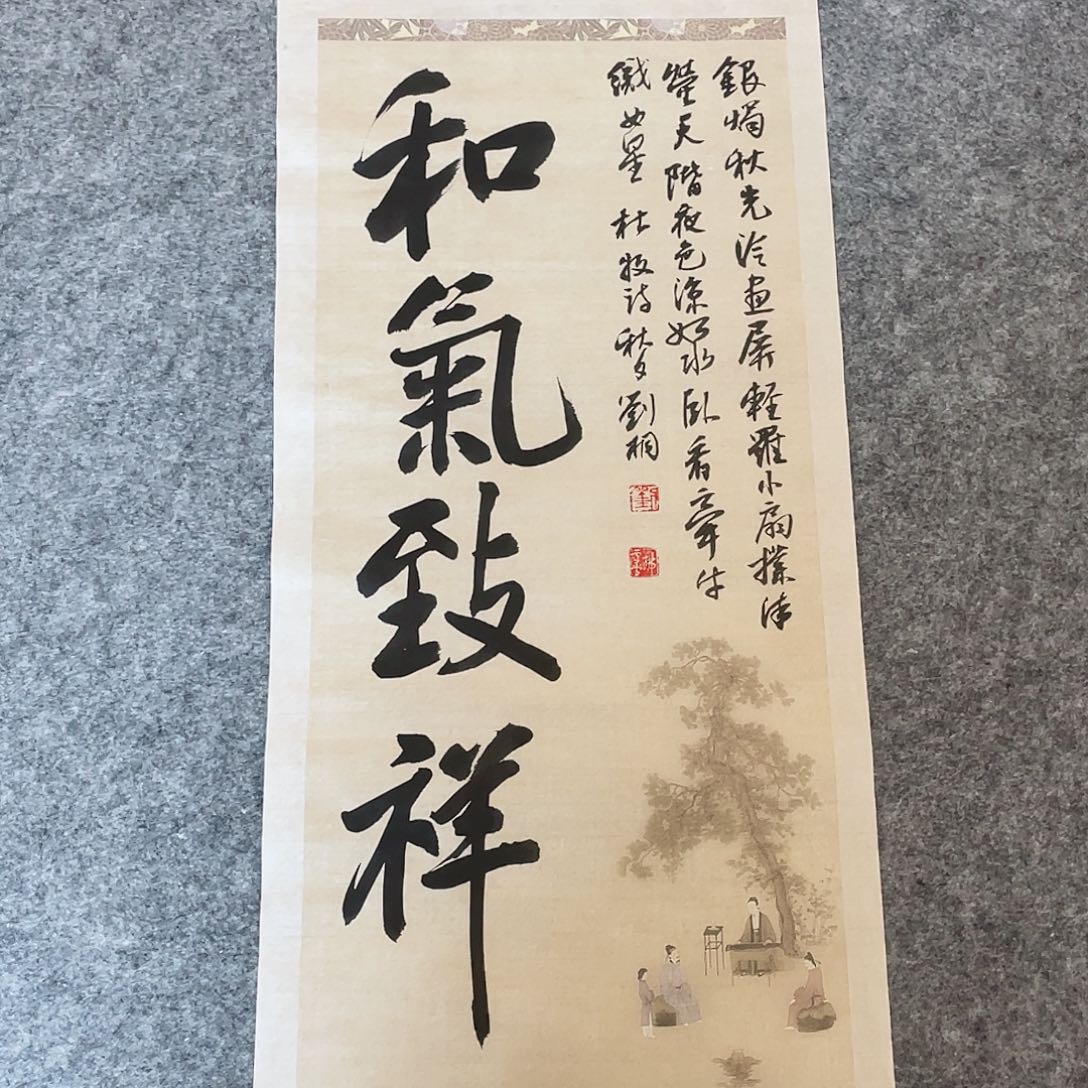 銀燭秋光冷畫屏輕羅小扇撲流
螢天階夜色涼如水臥看牽牛
織女星 杜牧詩秋夕 劉桐
和氣致祥